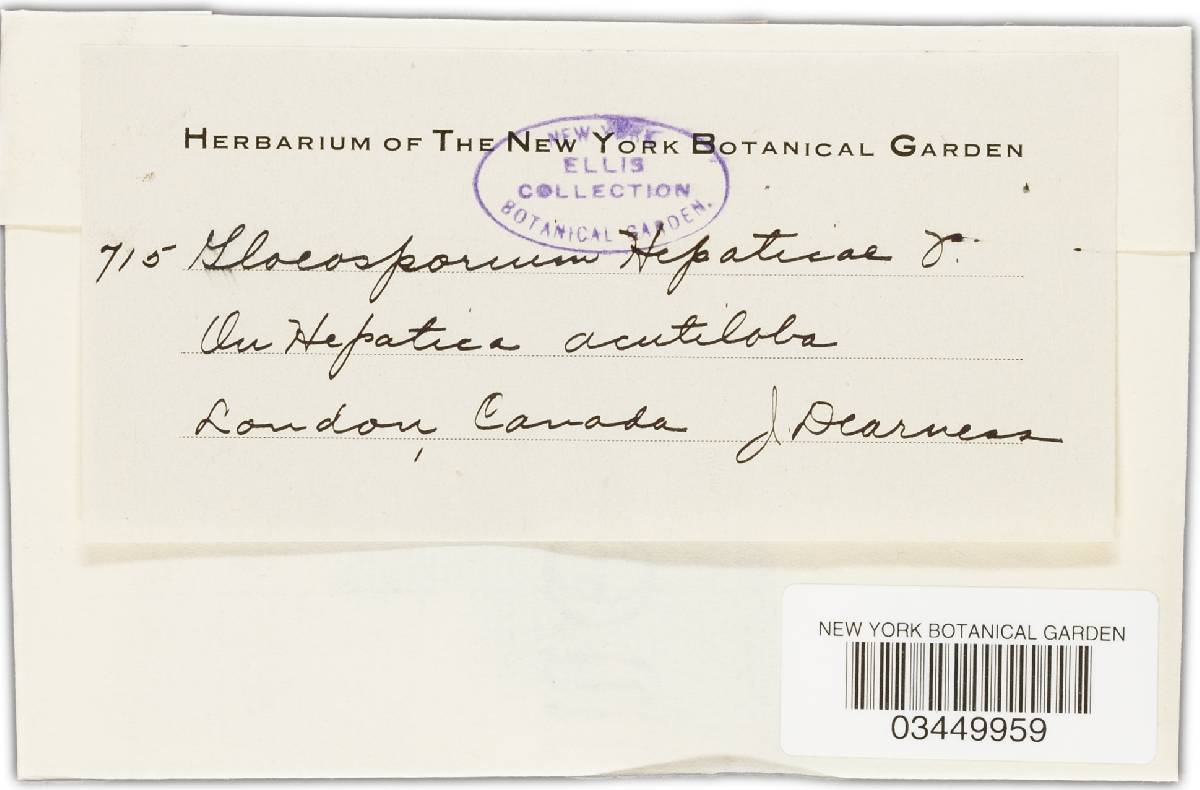 HERBARIUM OF THE NEW YORK BOTANICAL GARDEN
NEW YORK
ELLIS
COLLECTION
BOTANICAL GARDEN.
715 Gloeosporium Hepaticae
On Hepatica acutiloba
London, Canada J. Dearness
NEW YORK BOTANICAL GARDEN
03449959